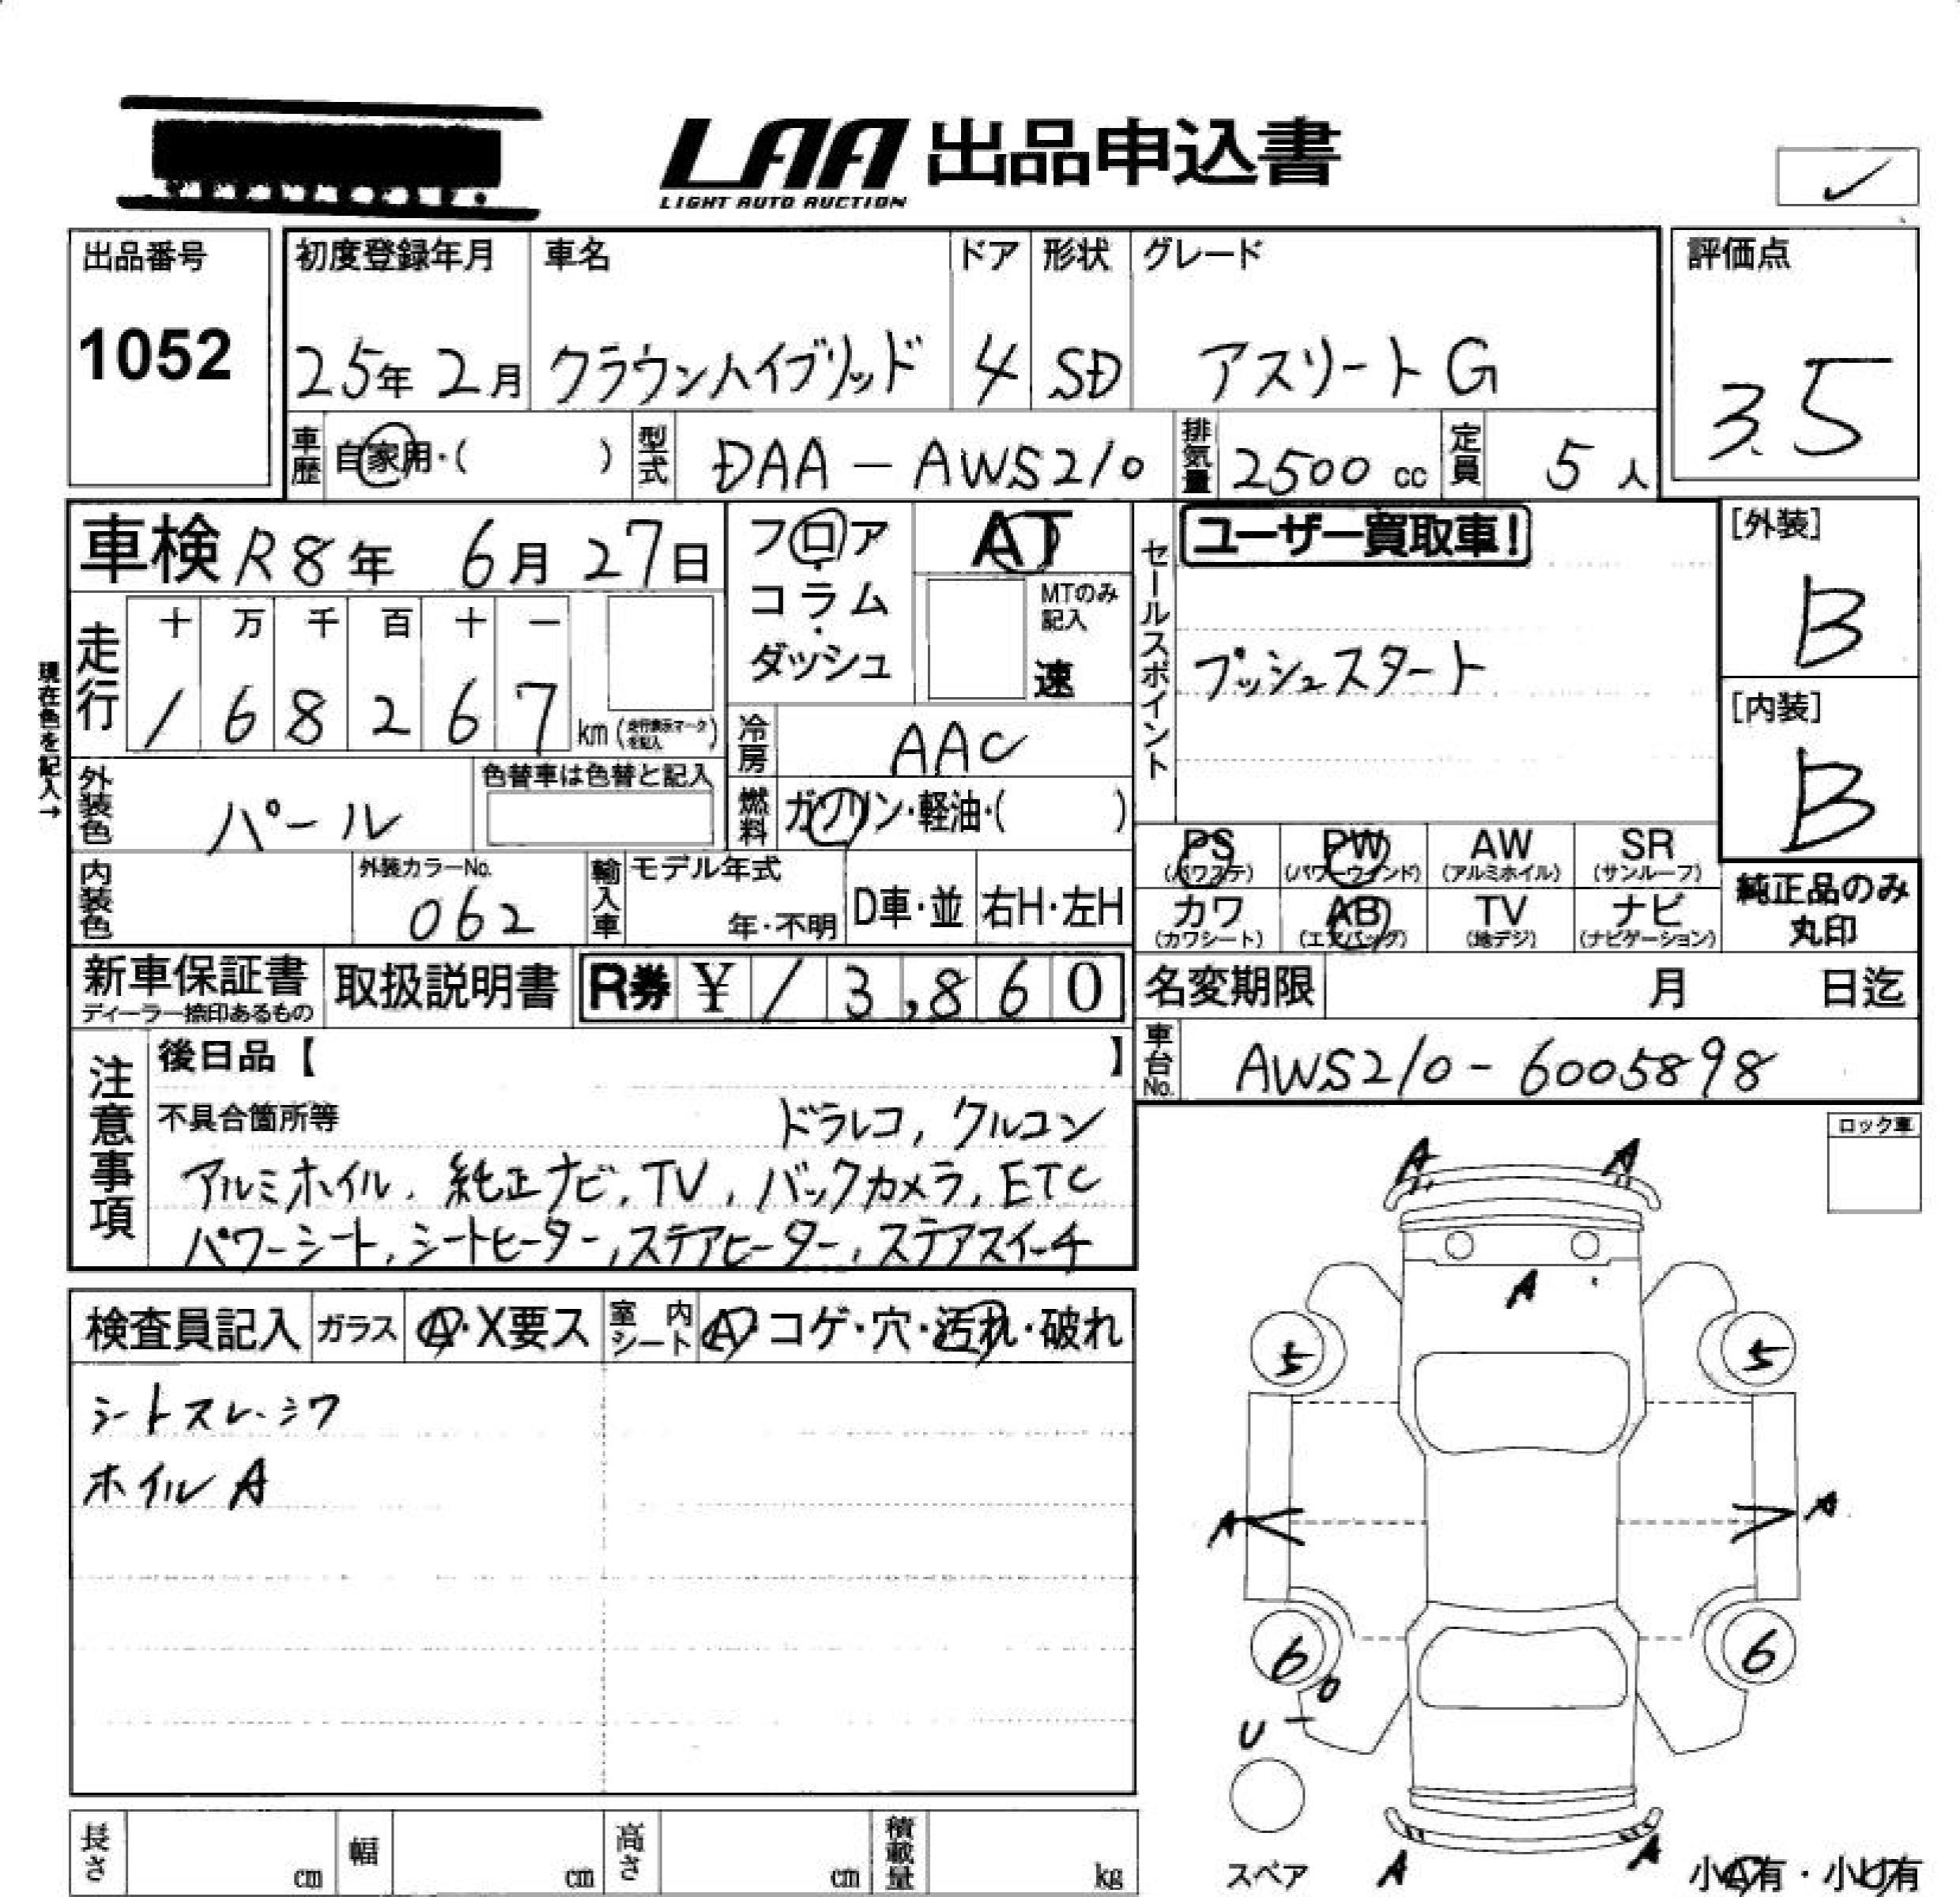 LAA 出品申込書
LIGHT AUTO AUCTION
✓
出品番号 初度登録年月 車名 ドア 形状 グレード 評価点
1052 25年 2月 クラウンハイブリッド 4 SD アスリート G 3.5
車歴 自家用・( ) 型式 DAA-AWS210 排気量 2500 cc 定員 5 人
車検 R8年 6月 27日
フロア・コラム・ダッシュ
AT
MTのみ記入
速
セールスポイント
ユーザー買取車!
プッシュスタート
[外装]
B
[内装]
B
現在色を記入→
走行 十 万 千 百 十 一
1 6 8 2 6 7 km (走行表示マークを記入)
冷房 AAC
外装色 パール 色替車は色替と記入
燃料 ガソリン・軽油・( )
PS (パワステ) PW (パワーウインド) AW (アルミホイル) SR (サンルーフ)
カワ (カワシート) AB (エアバッグ) TV (地デジ) ナビ (ナビゲーション)
純正品のみ
丸印
内装色 外装カラーNo. 062 輸入車 モデル年式 年・不明 D車・並 右H・左H
新車保証書 ディーラー捺印あるもの 取扱説明書 R券 ¥ 13,860
名変期限 月 日迄
車台No. AWS210-6005898
注意事項
後日品【 】
不具合箇所等 ドラレコ, クルコン
アルミホイル, 純正ナビ, TV, バックカメラ, ETC
パワーシート, シートヒーター, ステアヒーター, ステアスイーチ
ロック車
検査員記入 ガラス A・X要ス 室内シート A・コゲ・穴・汚れ・破れ
シートスレ・シワ
ホイル A
A A
A
5 5
A A
6 6
U
A A
スペア
小A有・小U有
長さ cm 幅 cm 高さ cm 積載量 kg